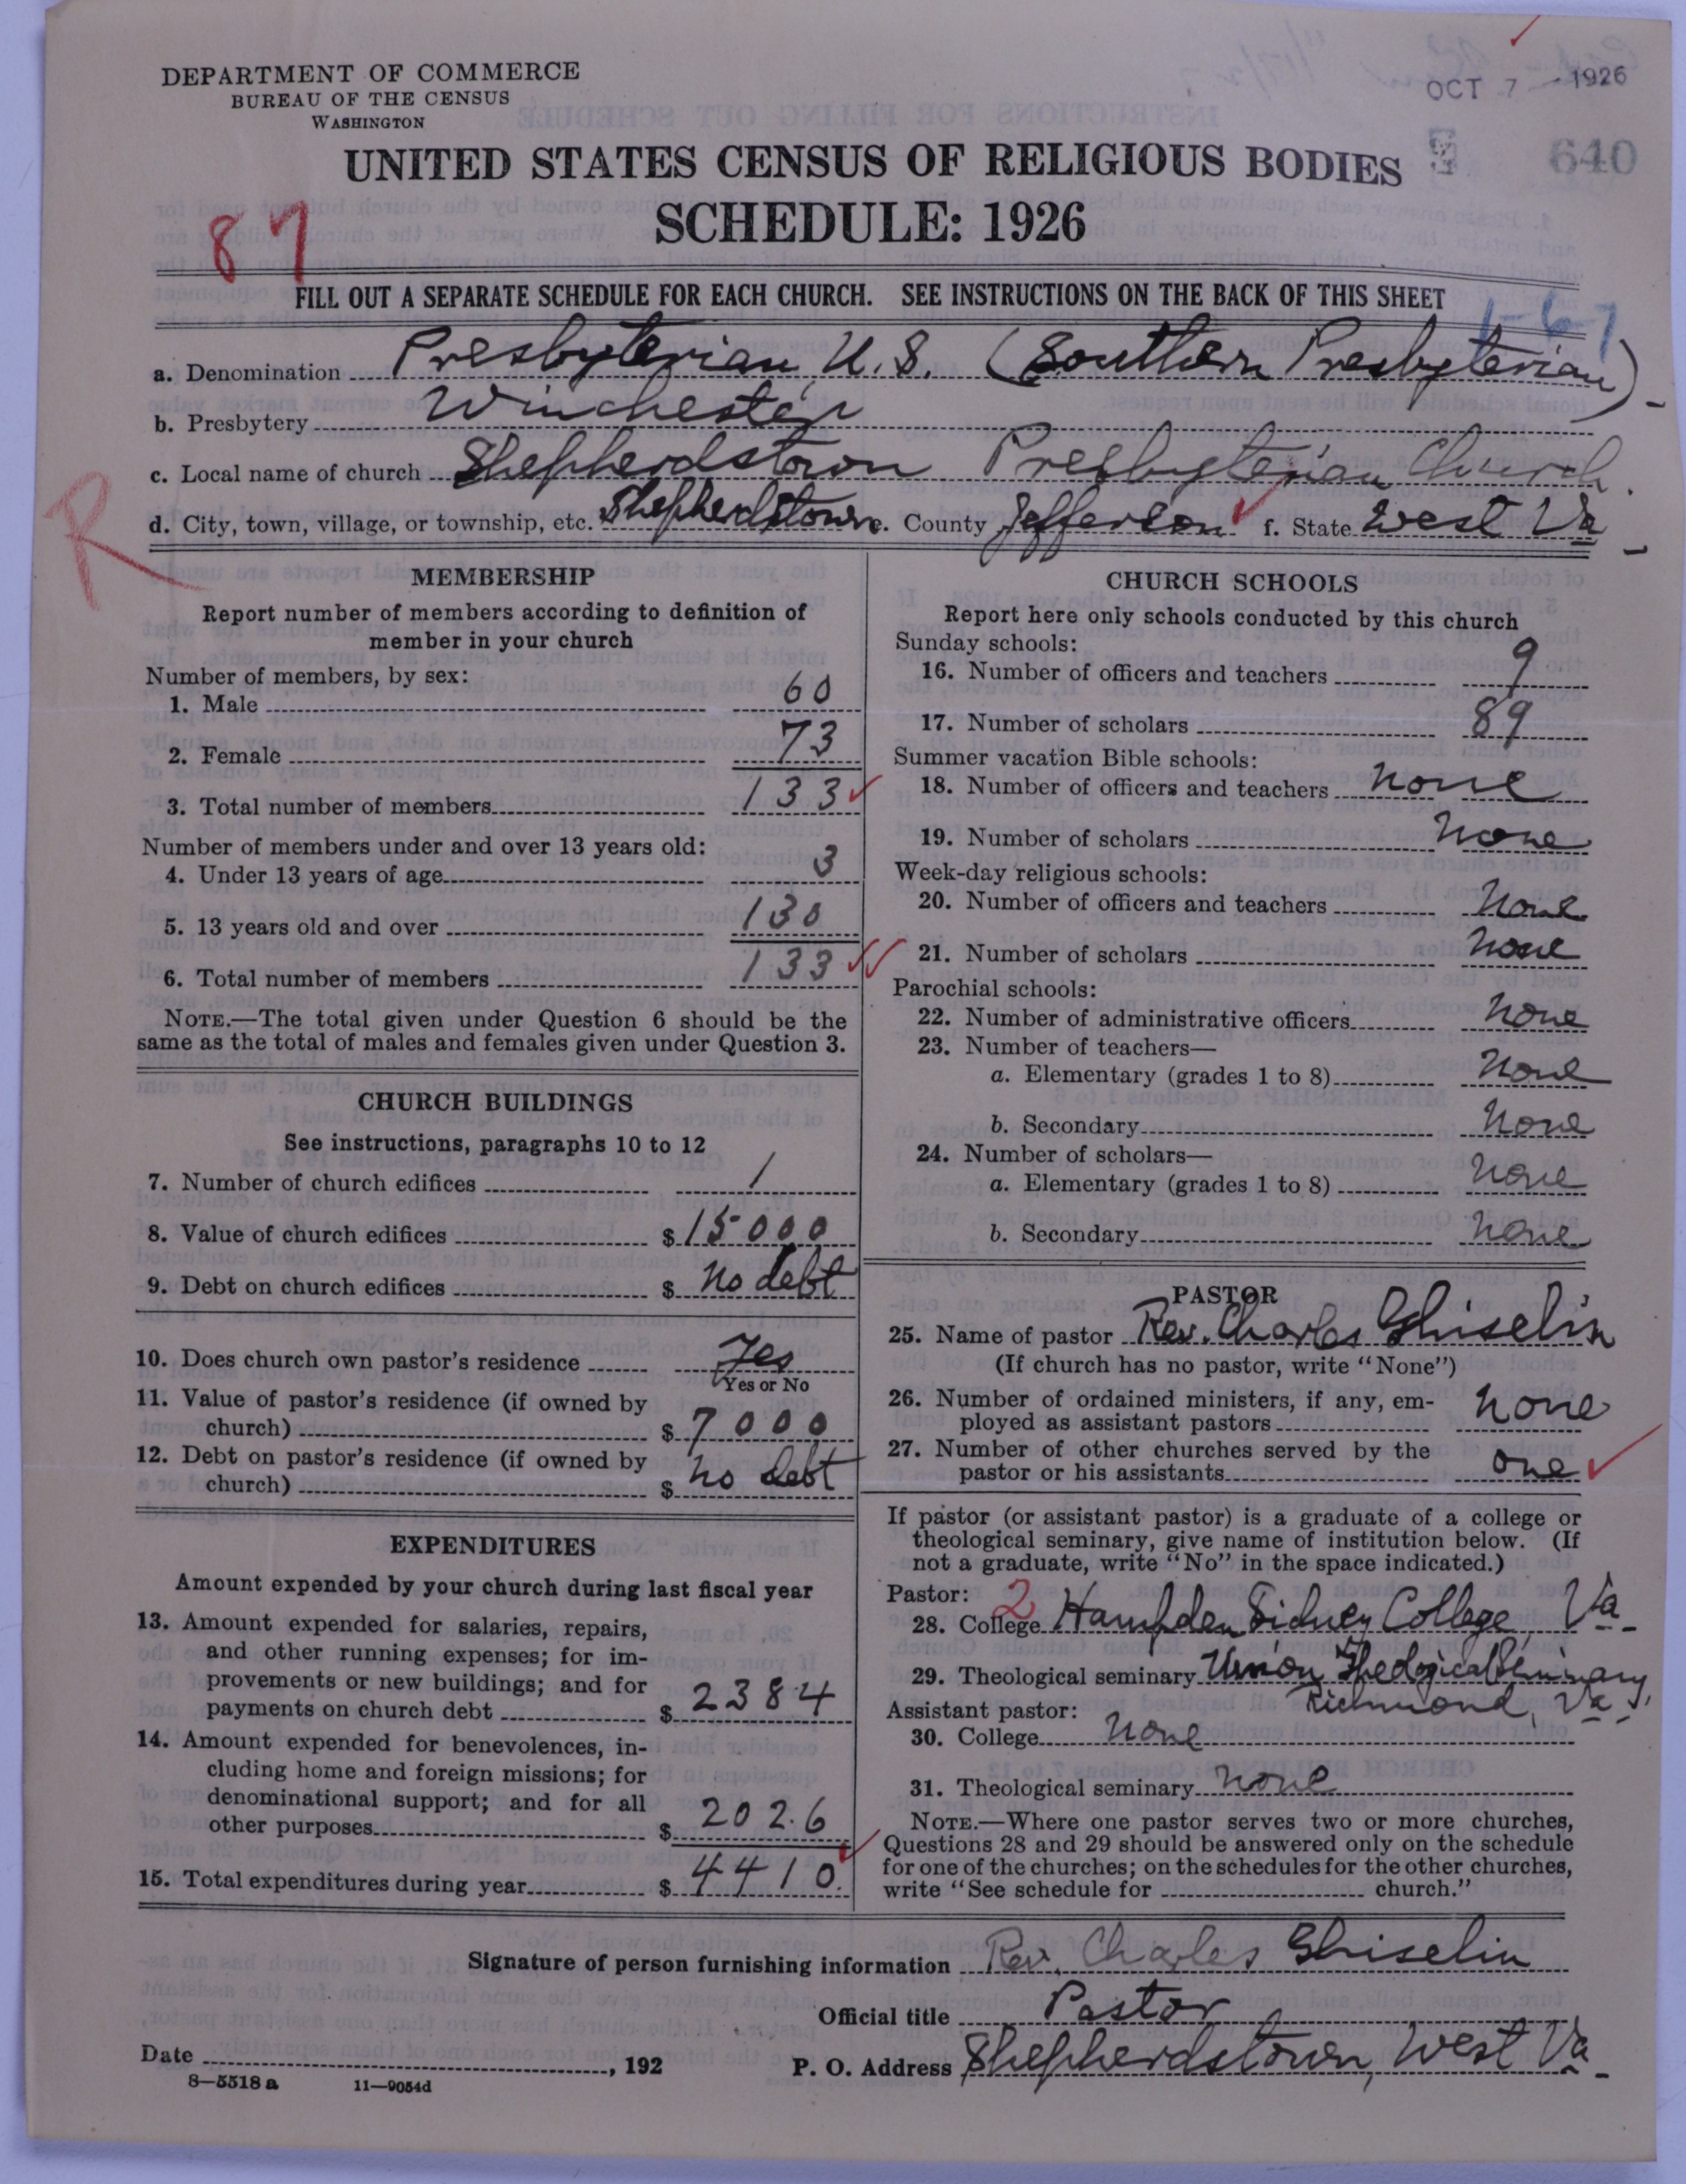 DEPARTMENT OF COMMERCE
BUREAU OF THE CENSUS
WASHINGTON
OCT 7 - 1926
640
UNITED STATES CENSUS OF RELIGIOUS BODIES
SCHEDULE: 1926
87
FILL OUT A SEPARATE SCHEDULE FOR EACH CHURCH. SEE INSTRUCTIONS ON THE BACK OF THIS SHEET
1-67
a. Denomination Presbyterian, U.S. (Southern Presbyterian)
b. Presbytery Winchester
c. Local name of church Shepherdstown Presbyterian Church.
d. City, town, village, or township, etc. Shepherdstown e. County Jefferson f. State West Va
R
MEMBERSHIP
Report number of members according to definition of
member in your church
Number of members, by sex:
1. Male 60
2. Female 73
3. Total number of members 133
Number of members under and over 13 years old:
4. Under 13 years of age 3
5. 13 years old and over 130
6. Total number of members 133
NOTE.—The total given under Question 6 should be the
same as the total of males and females given under Question 3.
CHURCH BUILDINGS
See instructions, paragraphs 10 to 12
7. Number of church edifices 1
8. Value of church edifices $ 15000
9. Debt on church edifices $ no debt
10. Does church own pastor's residence Yes
Yes or No
11. Value of pastor's residence (if owned by
church) $ 7000
12. Debt on pastor's residence (if owned by
church) $ no debt
EXPENDITURES
Amount expended by your church during last fiscal year
13. Amount expended for salaries, repairs,
and other running expenses; for im-
provements or new buildings; and for
payments on church debt $ 2384
14. Amount expended for benevolences, in-
cluding home and foreign missions; for
denominational support; and for all
other purposes $ 2026
15. Total expenditures during year $ 4410.
CHURCH SCHOOLS
Report here only schools conducted by this church
Sunday schools:
16. Number of officers and teachers 9
17. Number of scholars 89
Summer vacation Bible schools:
18. Number of officers and teachers none
19. Number of scholars none
Week-day religious schools:
20. Number of officers and teachers none
21. Number of scholars none
Parochial schools:
22. Number of administrative officers none
23. Number of teachers—
a. Elementary (grades 1 to 8) none
b. Secondary none
24. Number of scholars—
a. Elementary (grades 1 to 8) none
b. Secondary none
PASTOR
25. Name of pastor Rev. Charles Ghiselin
(If church has no pastor, write "None")
26. Number of ordained ministers, if any, em-
ployed as assistant pastors none
27. Number of other churches served by the
pastor or his assistants one
If pastor (or assistant pastor) is a graduate of a college or
theological seminary, give name of institution below. (If
not a graduate, write "No" in the space indicated.)
Pastor: 2
28. College Hampden Sidney College, Va.
29. Theological seminary Union Theological Seminary,
Richmond, Va.
Assistant pastor:
30. College none
31. Theological seminary none
NOTE.—Where one pastor serves two or more churches,
Questions 28 and 29 should be answered only on the schedule
for one of the churches; on the schedules for the other churches,
write "See schedule for church."
Signature of person furnishing information Rev. Charles Ghiselin
Official title Pastor
Date , 192
P. O. Address Shepherdstown, West Va.
8—5518 a 11—9054d